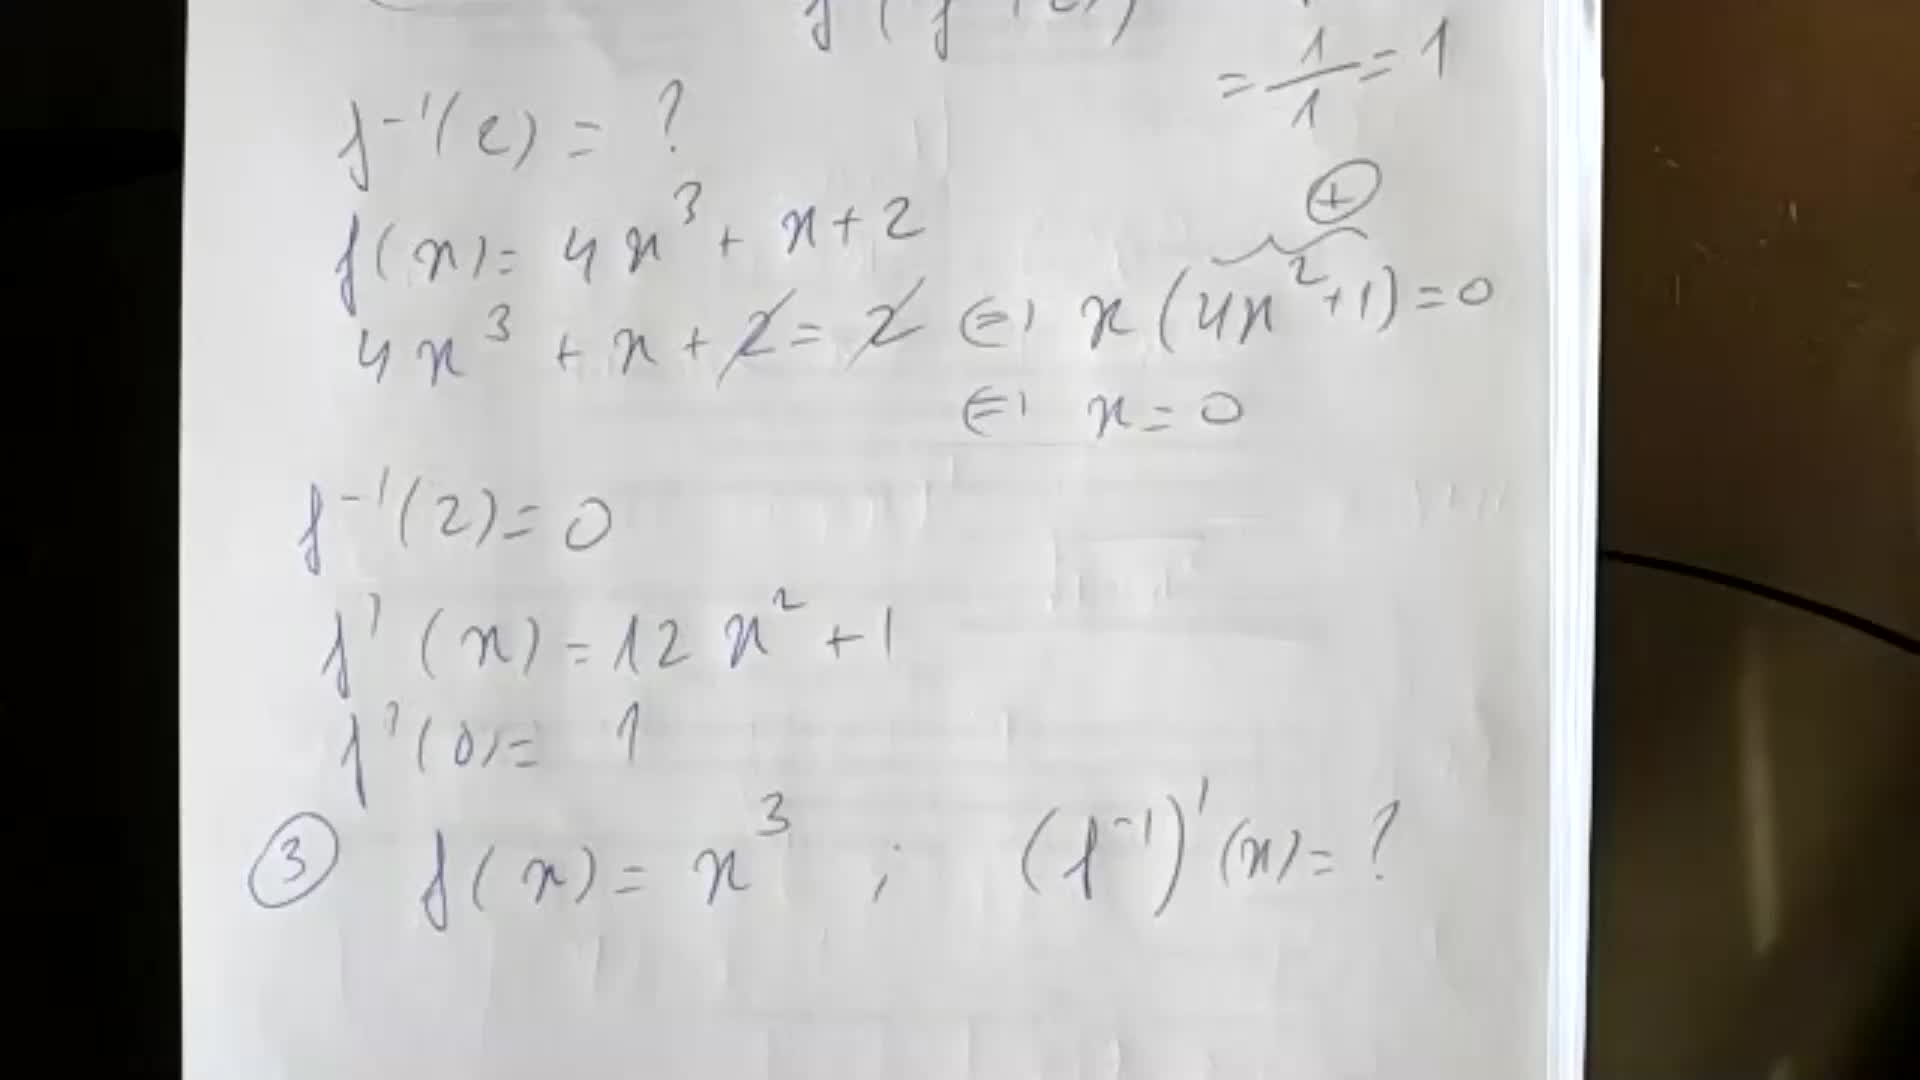 = 1/1 = 1
f⁻¹(2) = ?
f(x) = 4x³ + x + 2
4x³ + x + 2 = 2 ⇔ x(4x² + 1) = 0
⊕
⇔ x = 0
f⁻¹(2) = 0
f'(x) = 12x² + 1
f'(0) = 1
③ f(x) = x³ ; (f⁻¹)'(x) = ?